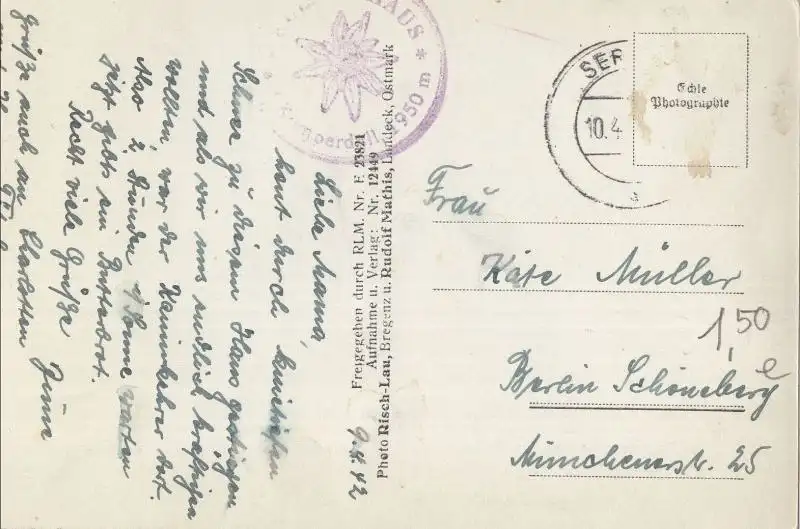 HAUS
Komperdell 1950 m *
SER
10.4
Echte
Photographie
Freigegeben durch RLM. Nr. E 23821
Aufnahme u. Verlag: Nr. 12449
Photo Risch-Lau, Bregenz u. Rudolf Mathis, Landeck, Ostmark
9.4.42
Liebe Mama,
heut durch knietiefen
Schnee zu diesem Haus gestiegen
und als wir uns endlich kräftigen
wollten, war der Kaminkehrer dort.
Also 2 Stunden i/Sonne warten
Jetzt gibt's ein Butterbrot.
Recht viele Grüße
Grüße auch an Charlotten
Frau
Käte Müller
Berlin Schöneberg
Münchenerstr. 25
1,50
e